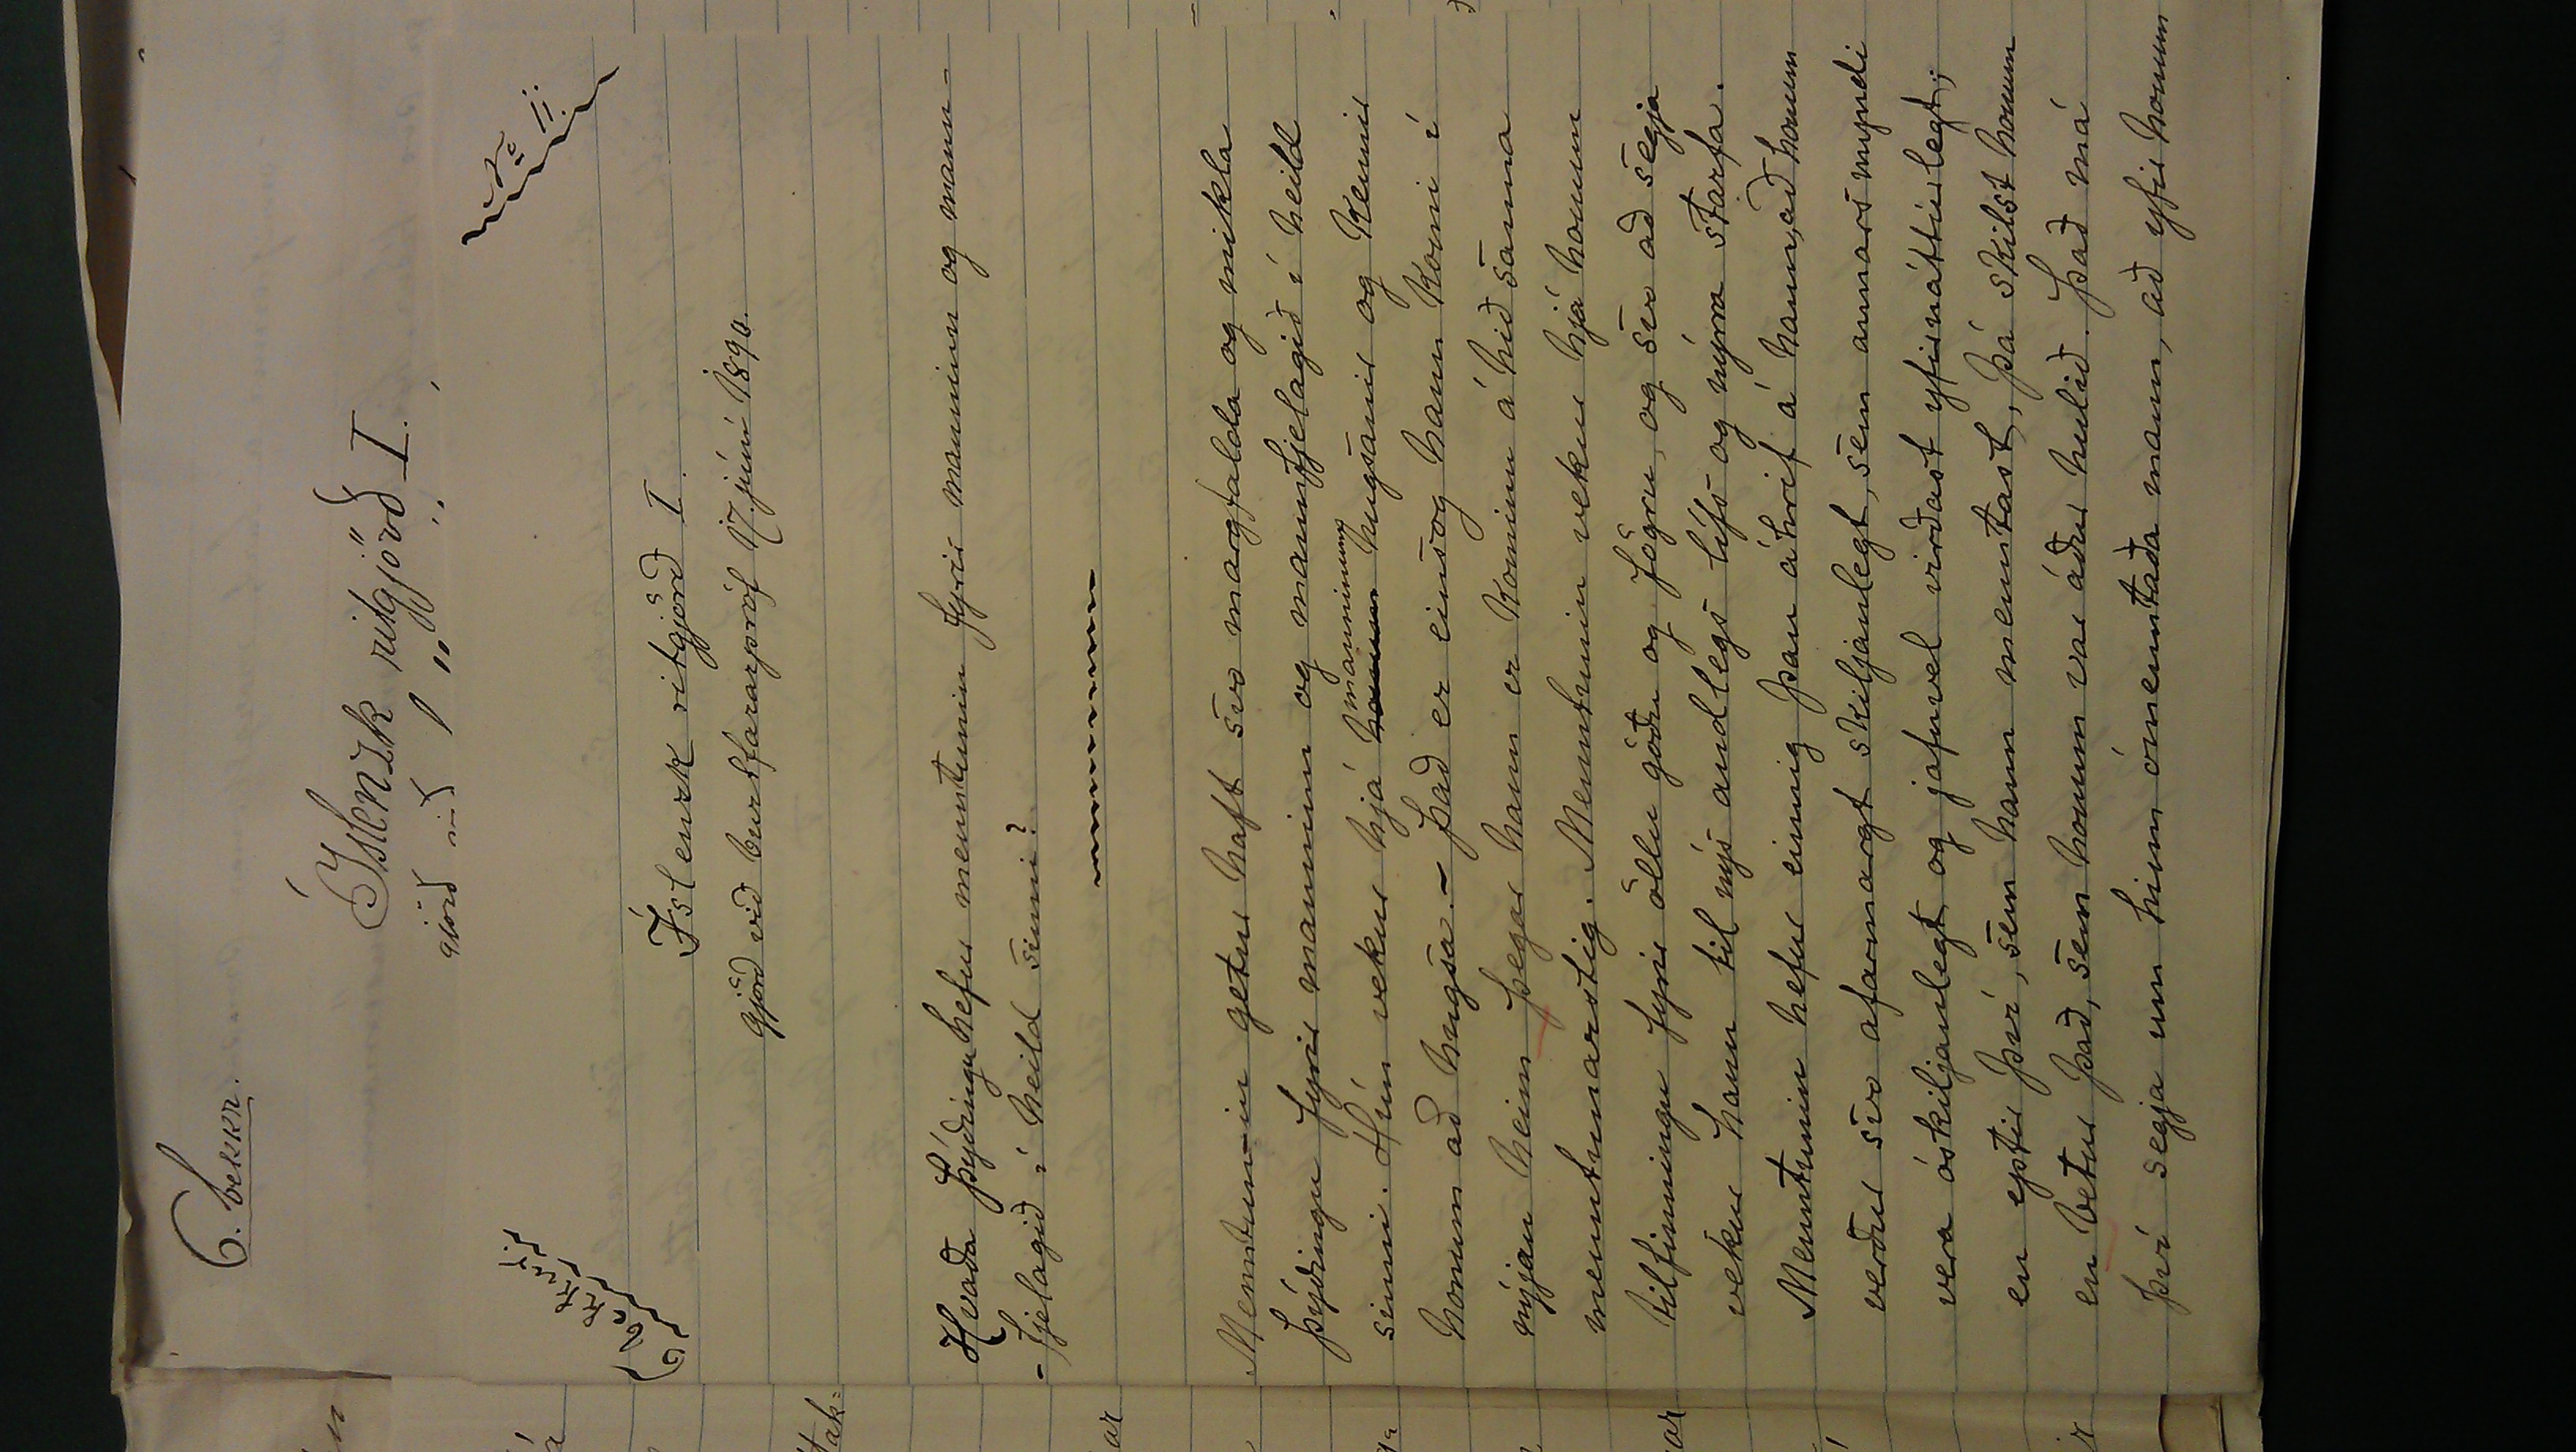 6. bekkr.
Íslenzk ritgjörð I.
gjörð við
Íslenzk ritgjörð I.
gjörð við burtfararpróf 17. júní 1890.
Hvaða þýðingu hefur menntunin fyrir manninn og mann-
-fjelagið í heild sinni?
Menntunin getur haft svo margfalda og mikla
þýðingu fyrir manninn og mannfjelagið í heild
sinni. Hún vekur hjá honum manninum hugsanir og kennir
honum að hugsa. - Það er einsog hann komi í
nýjan heim þegar hann er kominn á hið sanna
menntunarstig. Menntunin vekur hjá honum
tilfinningu fyrir öllu góðu og fögru, og svo að segja
vekur hann til nýs andlegs lífs og nýrra starfa.
Menntunin hefur einnig þau áhrif á hann, að honum
verður svo afarmargt skiljanlegt, sem annars myndi
vera óskiljanlegt, og jafnvel virðast yfirnáttúrlegt;
en eptir því, sem hann menntast, þá skilst honum
en betur það, sem honum var áður hulið. Það má
því segja um hinn ómenntaða mann, að yfir honum